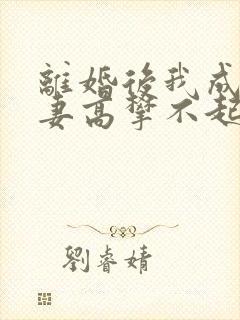 離婚後我成
妻高攀不起
劉睿婧